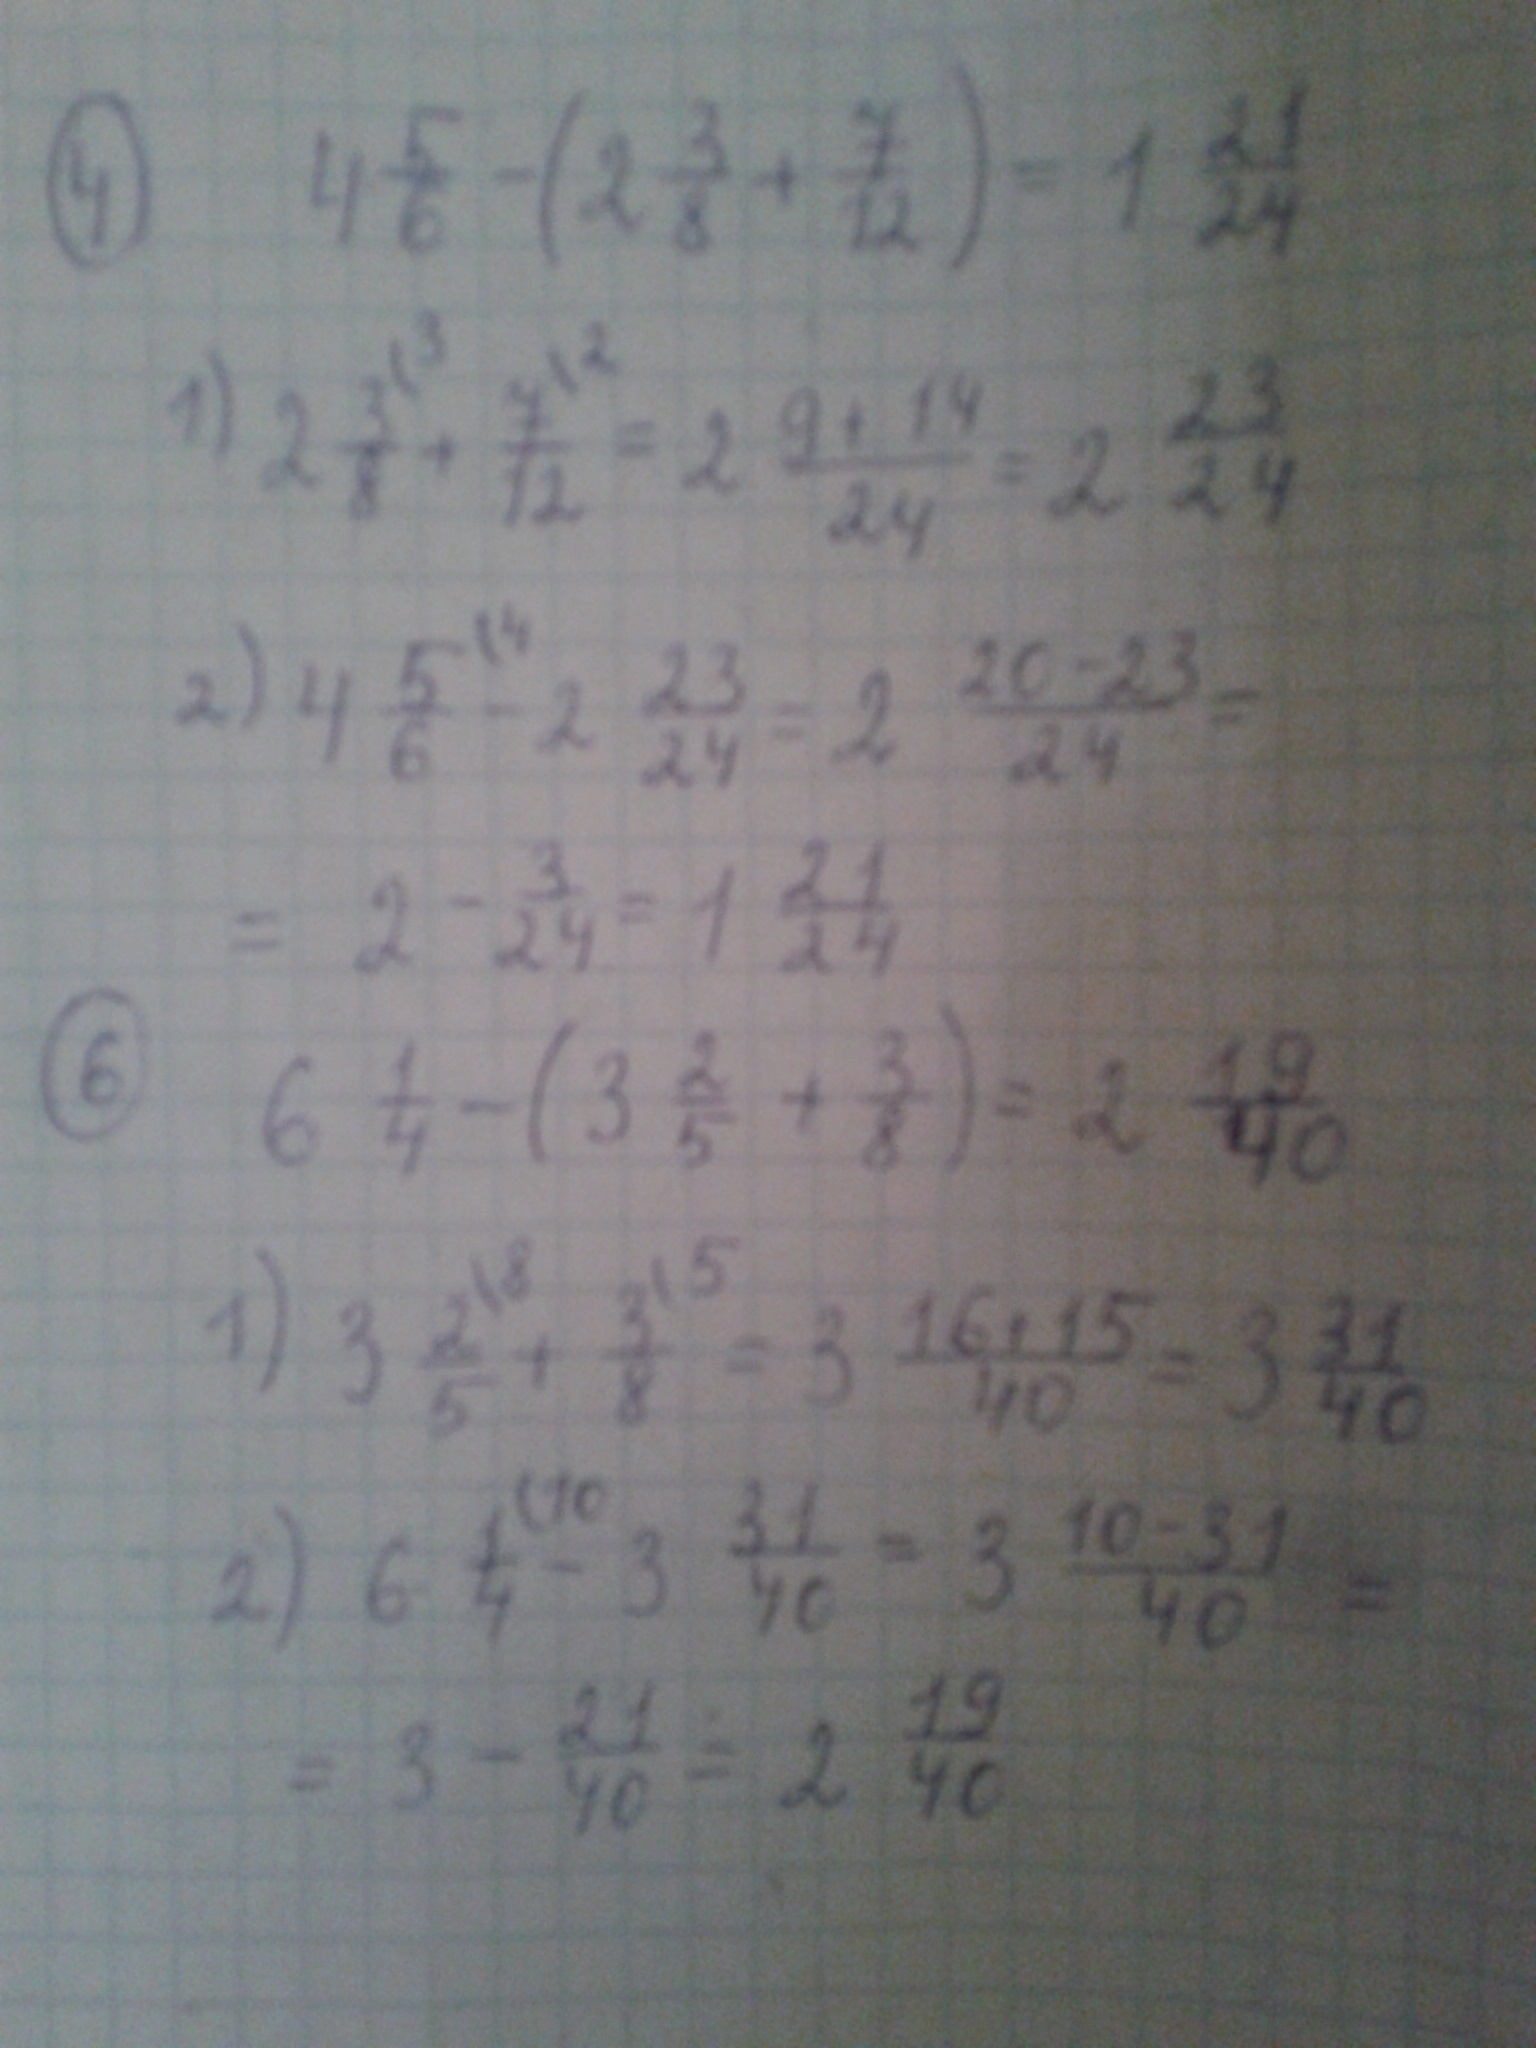 ④ 4 5/6 - (2 3/8 + 7/12) = 1 21/24
1) 2 3/8 (3 + 7/12 (2 = 2 9+14/24 = 2 23/24
2) 4 5/6 (4 - 2 23/24 = 2 20-23/24 =
= 2 - 3/24 = 1 21/24
⑥ 6 1/4 - (3 2/5 + 3/8) = 2 19/40
1) 3 2/5 (8 + 3/8 (5 = 3 16+15/40 = 3 31/40
2) 6 1/4 (10 - 3 31/40 = 3 10-31/40 =
= 3 - 21/40 = 2 19/40